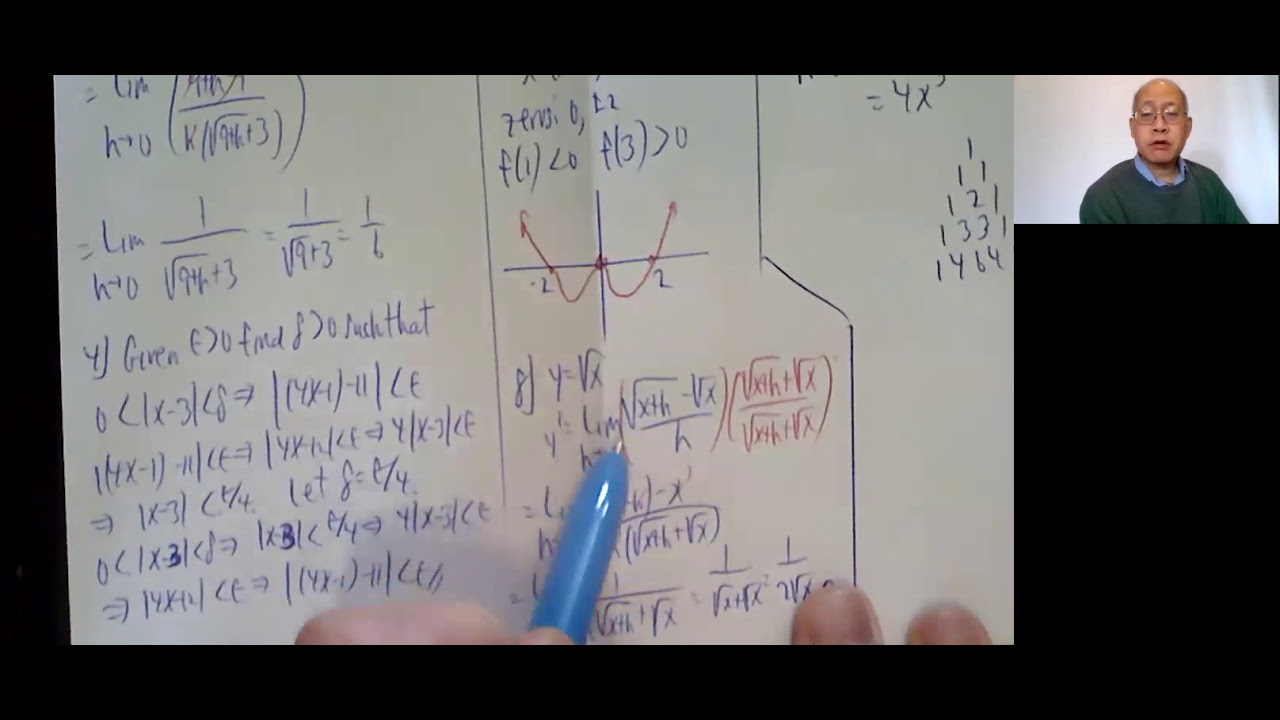 = lim
h→0 K(√9+h+3)
= Lim 1/(√9+h+3) = 1/(√9+3) = 1/6
h→0
4) Given ε>0 find δ>0 such that
0<|x-3|<δ ⇒ |(4x-1)-11|<ε
|(4x-1)-11|<ε ⇒ |4x-12|<ε ⇒ 4|x-3|<ε
⇒ |x-3|<ε/4. Let δ=ε/4.
0<|x-3|<δ ⇒ |x-3|<ε/4 ⇒ 4|x-3|<ε
⇒ |4x-12|<ε ⇒ |(4x-1)-11|<ε//
zeros: 0, ±2
f(1)<0 f(3)>0
-2 2
8) y=√x
y' = Lim ((√x+h - √x)/h)((√x+h+√x)/(√x+h+√x))
h
= -x
(√x+h+√x)
= 1/(√x+h+√x) = 1/(√x+√x) = 1/(2√x)
= 4x³
1
1 1
1 2 1
1 3 3 1
1 4 6 4